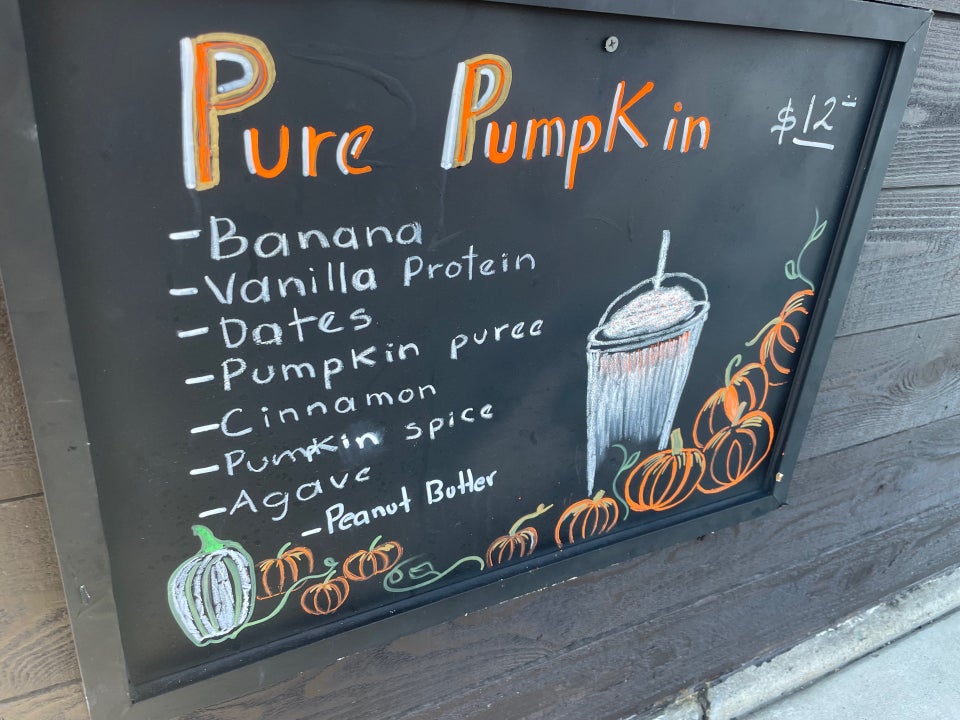 Pure Pumpkin $12=
- Banana
- Vanilla Protein
- Dates
- Pumpkin puree
- Cinnamon
- Pumpkin spice
- Agave
- Peanut Butter